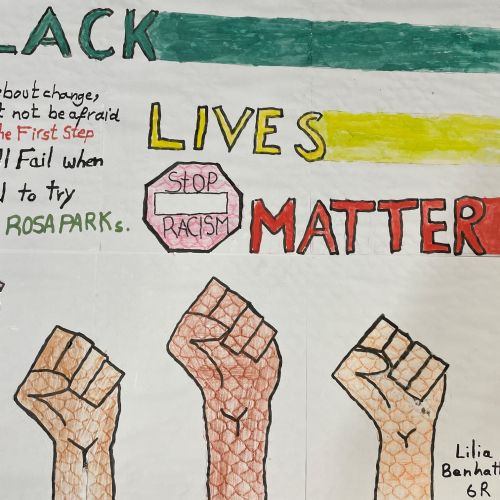 LACK
about change,
t not be afraid
he First Step
ll Fail when
to try
ROSA PARKs.
LIVES
STOP
RACISM
MATTER
Lilia
Benhatt
6R